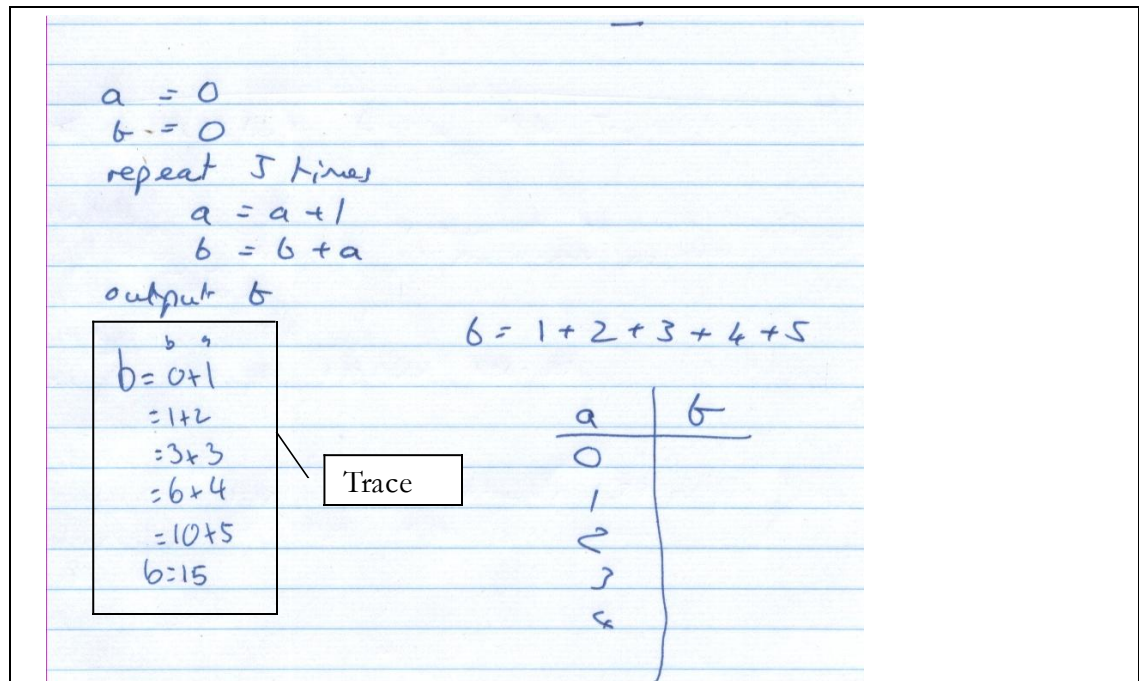 a = 0
b = 0
repeat 5 times
a = a + 1
b = b + a
output b
b a
b = 0+1
= 1+2
= 3+3
= 6+4
= 10+5
b = 15
Trace
b = 1 + 2 + 3 + 4 + 5
a b
0
1
2
3
4